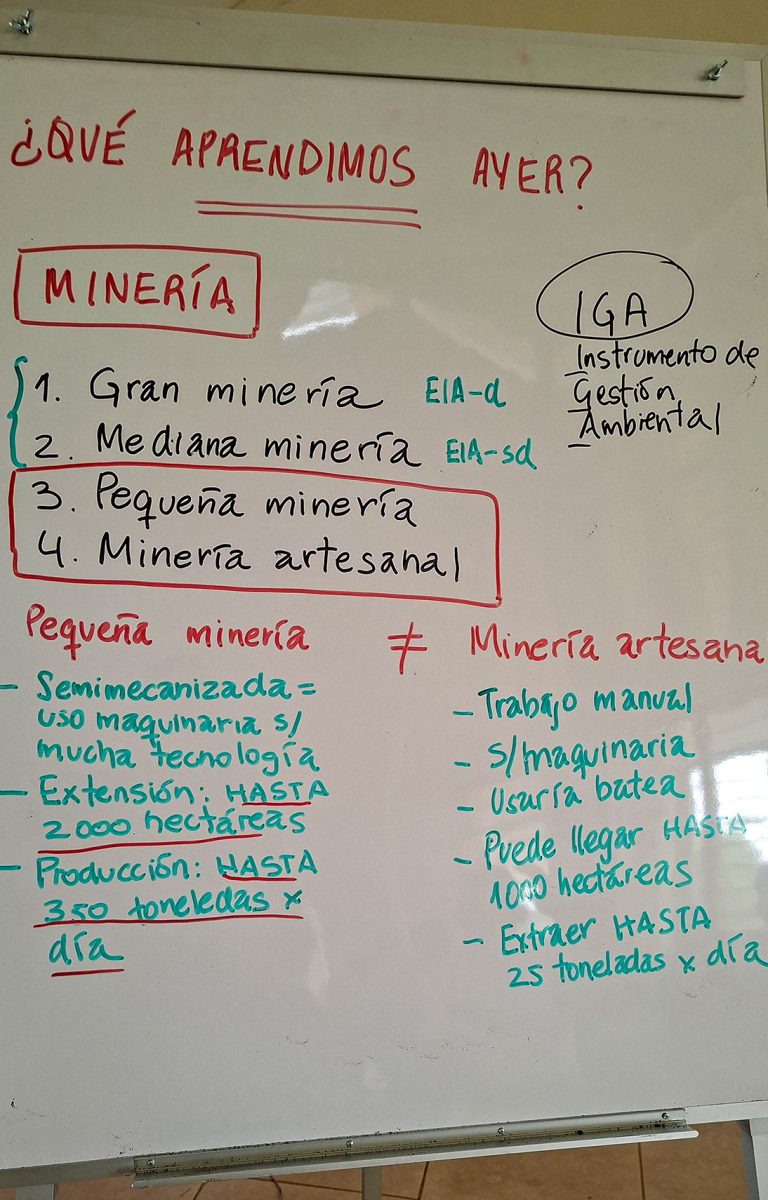 ¿QUÉ APRENDIMOS AYER?
MINERÍA
IGA
Instrumento de
Gestión
Ambiental
1. Gran minería EIA-d
2. Mediana minería EIA-sd
3. Pequeña minería
4. Minería artesanal
Pequeña minería ≠ Minería artesana
- Semimecanizada =
uso maquinaria s/
mucha tecnología
- Extensión: HASTA
2000 hectáreas
- Producción: HASTA
350 toneledas x
día
- Trabajo manual
- s/maquinaria
- Usaría batea
- Puede llegar HASTA
1000 hectáreas
- Extraer HASTA
25 toneladas x día